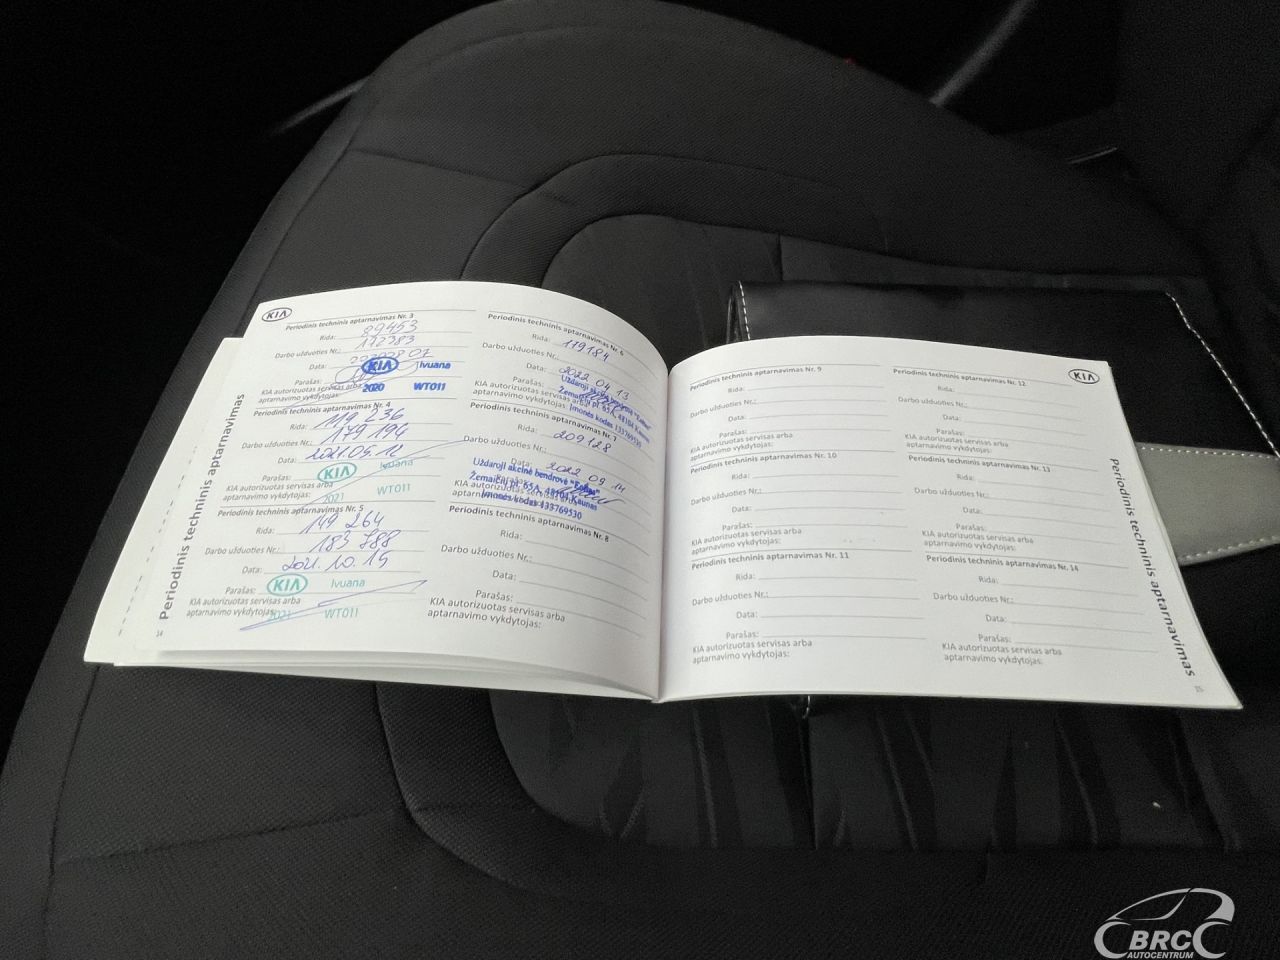 KIA
Periodinis techninis aptarnavimas Nr. 3
Rida: 89453
Darbo užduoties Nr.: 172383
Data:
Parašas:
KIA Ivuana
KIA autorizuotas servisas arba
aptarnavimo vykdytojas:
2020 WT011
Periodinis techninis aptarnavimas Nr. 4
Rida: 119 236
Darbo užduoties Nr.: 179 194
Data: 2021.05.12
Parašas:
KIA Ivuana
KIA autorizuotas servisas arba
aptarnavimo vykdytojas:
2021 WT011
Periodinis techninis aptarnavimas Nr. 5
Rida: 149 264
Darbo užduoties Nr.: 183 788
Data: 2021.10.15
Parašas:
KIA Ivuana
KIA autorizuotas servisas arba
aptarnavimo vykdytojas:
2021 WT011
Periodinis techninis aptarnavimas
14
Periodinis techninis aptarnavimas Nr. 6
Rida: 179184
Darbo užduoties Nr.:
Data: 2022 04 13
Parašas:
KIA autorizuotas servisas arba
aptarnavimo vykdytojas:
Uždaroji akcinė bendrovė
Žemaičių pl. 65A, 48104 Kaunas
Įmonės kodas 133769530
Periodinis techninis aptarnavimas Nr. 7
Rida: 209128
Darbo užduoties Nr.:
Data: 2022 09 14
Parašas:
KIA autorizuotas servisas
Uždaroji akcinė bendrovė
Žemaičių pl. 65A, 48104 Kaunas
Įmonės kodas 133769530
Periodinis techninis aptarnavimas Nr. 8
Rida:
Darbo užduoties Nr.:
Data:
Parašas:
KIA autorizuotas servisas arba
aptarnavimo vykdytojas:
Periodinis techninis aptarnavimas Nr. 9
Rida:
Darbo užduoties Nr.:
Data:
Parašas:
KIA autorizuotas servisas arba
aptarnavimo vykdytojas:
Periodinis techninis aptarnavimas Nr. 10
Rida:
Darbo užduoties Nr.:
Data:
Parašas:
KIA autorizuotas servisas arba
aptarnavimo vykdytojas:
Periodinis techninis aptarnavimas Nr. 11
Rida:
Darbo užduoties Nr.:
Data:
Parašas:
KIA autorizuotas servisas arba
aptarnavimo vykdytojas:
KIA
Periodinis techninis aptarnavimas Nr. 12
Rida:
Darbo užduoties Nr.:
Data:
Parašas:
KIA autorizuotas servisas arba
aptarnavimo vykdytojas:
Periodinis techninis aptarnavimas Nr. 13
Rida:
Darbo užduoties Nr.:
Data:
Parašas:
KIA autorizuotas servisas arba
aptarnavimo vykdytojas:
Periodinis techninis aptarnavimas Nr. 14
Rida:
Darbo užduoties Nr.:
Data:
Parašas:
KIA autorizuotas servisas arba
aptarnavimo vykdytojas:
Periodinis techninis aptarnavimas
15
BRC
AUTOCENTRUM